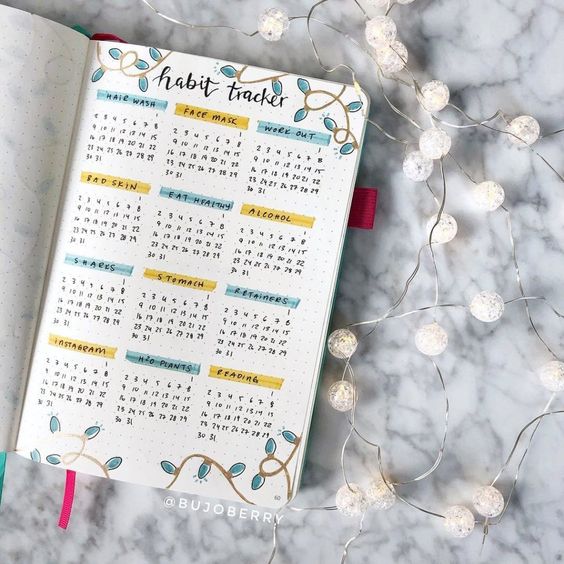 habit tracker
HAIR WASH
1
2 3 4 5 6 7 8
9 10 11 12 13 14 15
16 17 18 19 20 21 22
23 24 25 26 27 28 29
30 31
FACE MASK
1
2 3 4 5 6 7 8
9 10 11 12 13 14 15
16 17 18 19 20 21 22
23 24 25 26 27 28 29
30 31
WORK OUT
1
2 3 4 5 6 7 8
9 10 11 12 13 14 15
16 17 18 19 20 21 22
23 24 25 26 27 28 29
30 31
BAD SKIN
1
2 3 4 5 6 7 8
9 10 11 12 13 14 15
16 17 18 19 20 21 22
23 24 25 26 27 28 29
30 31
EAT HEALTHY
1
2 3 4 5 6 7 8
9 10 11 12 13 14 15
16 17 18 19 20 21 22
23 24 25 26 27 28 29
30 31
ALCOHOL
1
2 3 4 5 6 7 8
9 10 11 12 13 14 15
16 17 18 19 20 21 22
23 24 25 26 27 28 29
30 31
SHARKS
1
2 3 4 5 6 7 8
9 10 11 12 13 14 15
16 17 18 19 20 21 22
23 24 25 26 27 28 29
30 31
STOMACH
1
2 3 4 5 6 7 8
9 10 11 12 13 14 15
16 17 18 19 20 21 22
23 24 25 26 27 28 29
30 31
RETAINERS
1
2 3 4 5 6 7 8
9 10 11 12 13 14 15
16 17 18 19 20 21 22
23 24 25 26 27 28 29
30 31
INSTAGRAM
1
2 3 4 5 6 7 8
9 10 11 12 13 14 15
16 17 18 19 20 21 22
23 24 25 26 27 28 29
30 31
H2O PLANTS
1
2 3 4 5 6 7 8
9 10 11 12 13 14 15
16 17 18 19 20 21 22
23 24 25 26 27 28 29
30 31
READING
1
2 3 4 5 6 7 8
9 10 11 12 13 14 15
16 17 18 19 20 21 22
23 24 25 26 27 28 29
30 31
60
@BUJOBERRY